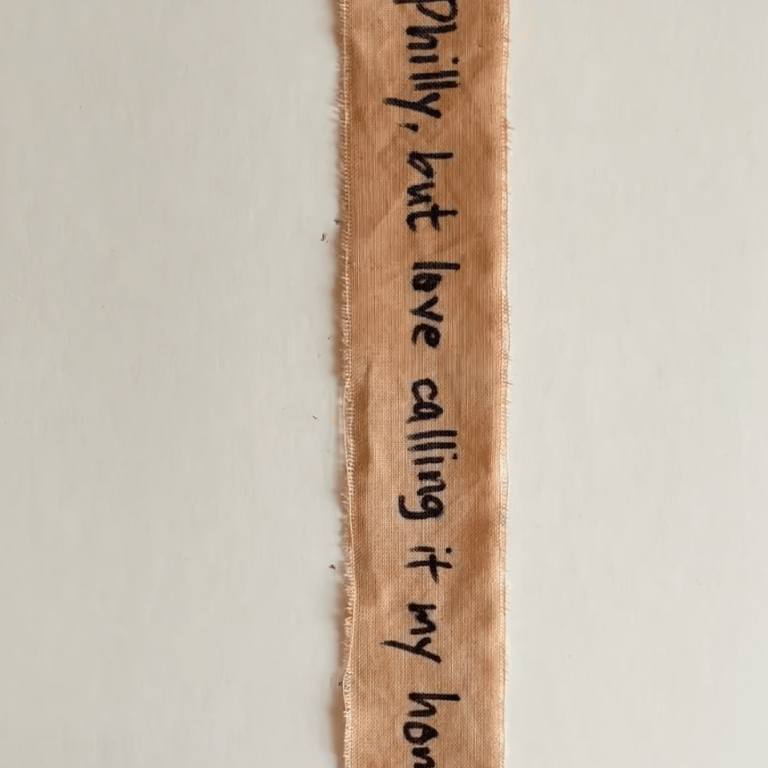 Philly, but love calling it my hom